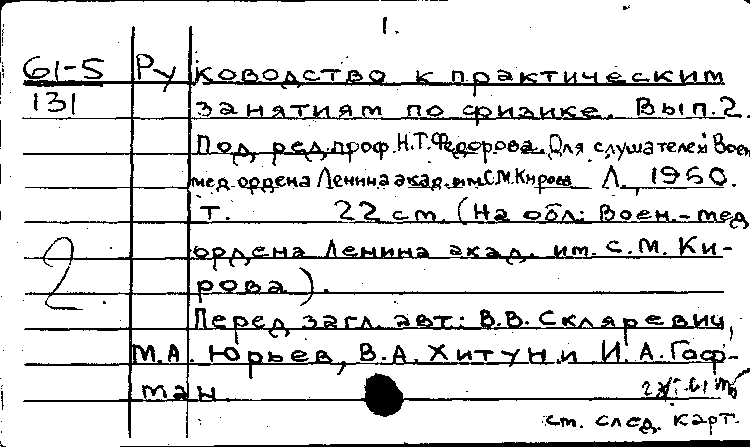 1.
61-5 Руководство к практическим
131 занятиям по физике. Вып. 2.
Под ред. проф. Н.Т. Федорова. Для слушателей Воен.
мед. ордена Ленина акад. им. С.М. Кирова Л., 1960.
Т. 22 см. (На обл.: Воен.-мед
ордена Ленина акад. им. С.М. Ки-
2 рова).
Перед загл. авт.: В.В. Скляревич,
М.А. Юрьев, В.А. Хитун и И.А. Гоф-
ман.
см. след. карт.